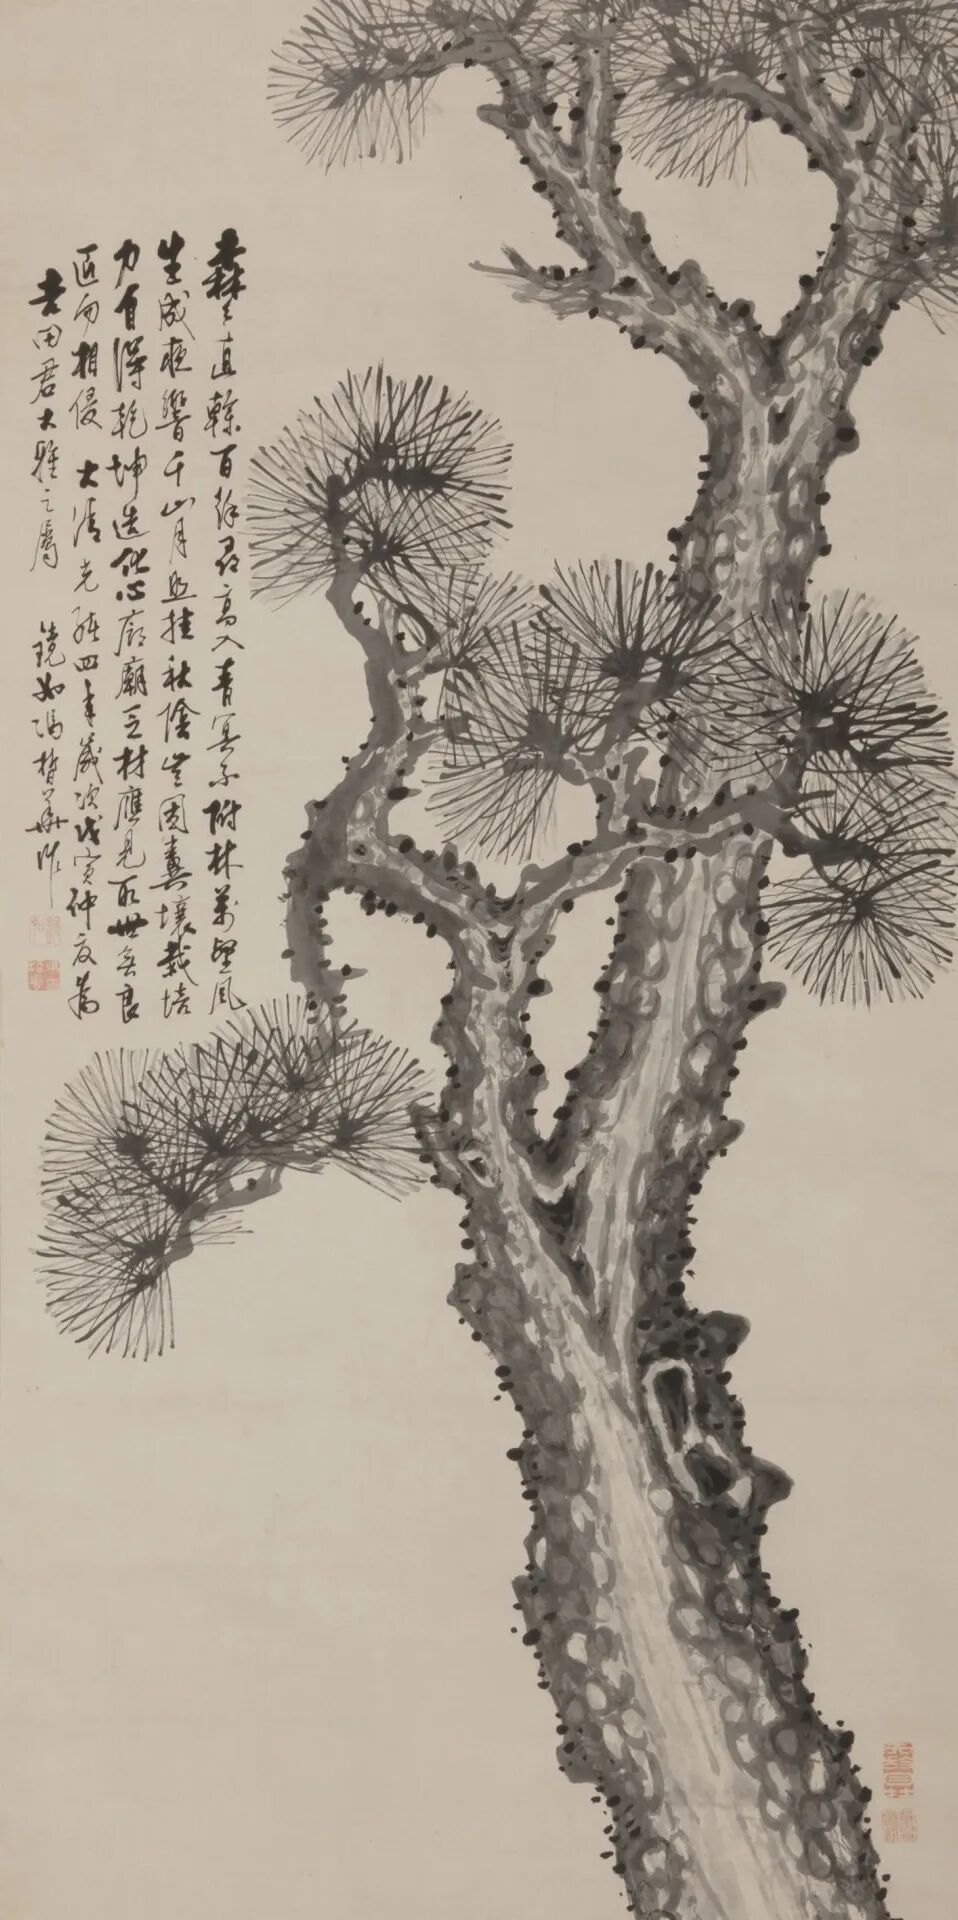 森々直榦百餘尋高入青冥不附林萬壑風
生成夜響千山月照挂秋陰豈因糞壤栽培
力自得乾坤造化心廊廟乏材應見取世無良
匠勿相侵 大清光緒四年歲次戊寅仲夏為
吉田君大雅之屬 鏡如馮哲華作